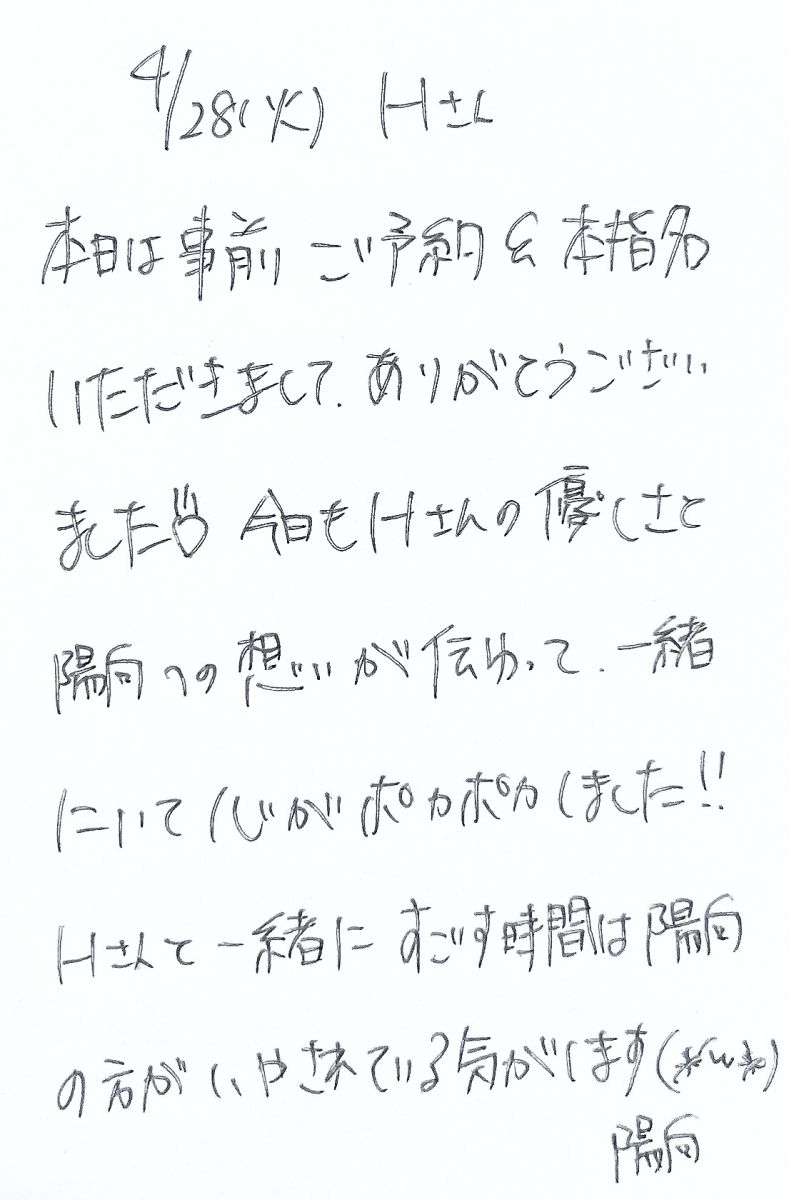 4/28(火) Hさん
本日は事前ご予約&本指名
いただきまして、ありがとうござい
ました 今日もHさんの優しさと
陽向への想いが伝わって、一緒
にいて心がポカポカしました!!
Hさんと一緒にすごす時間は陽向
の方がいやされている気がします(*^w^*)
陽向